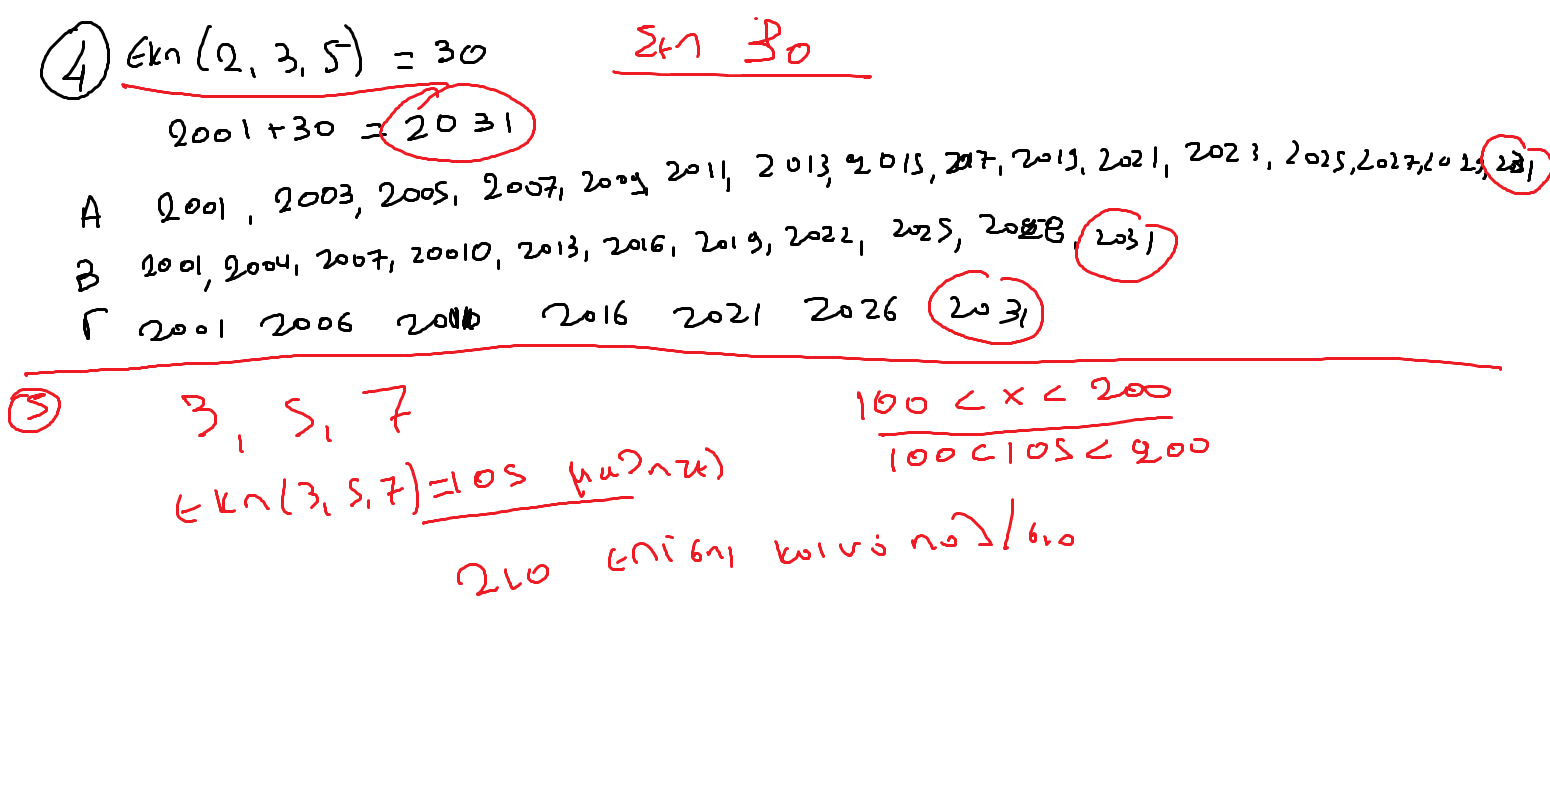 ④ Εκπ(2, 3, 5) = 30 Σεπ 30
2001+30 = 2031
Α 2001, 2003, 2005, 2007, 2009, 2011, 2013, 2015, 2017, 2019, 2021, 2023, 2025, 2027, 2029, 2031
Β 2001, 2004, 2007, 20010, 2013, 2016, 2019, 2022, 2025, 2028, 2031
Γ 2001 2006 2016 2021 2026 2031
⑤ 3, 5, 7 100 < x < 200
100 < 105 < 200
ΕΚΠ(3, 5, 7) = 105 μαθητές
210 επίσης κοινό πολ/σιο